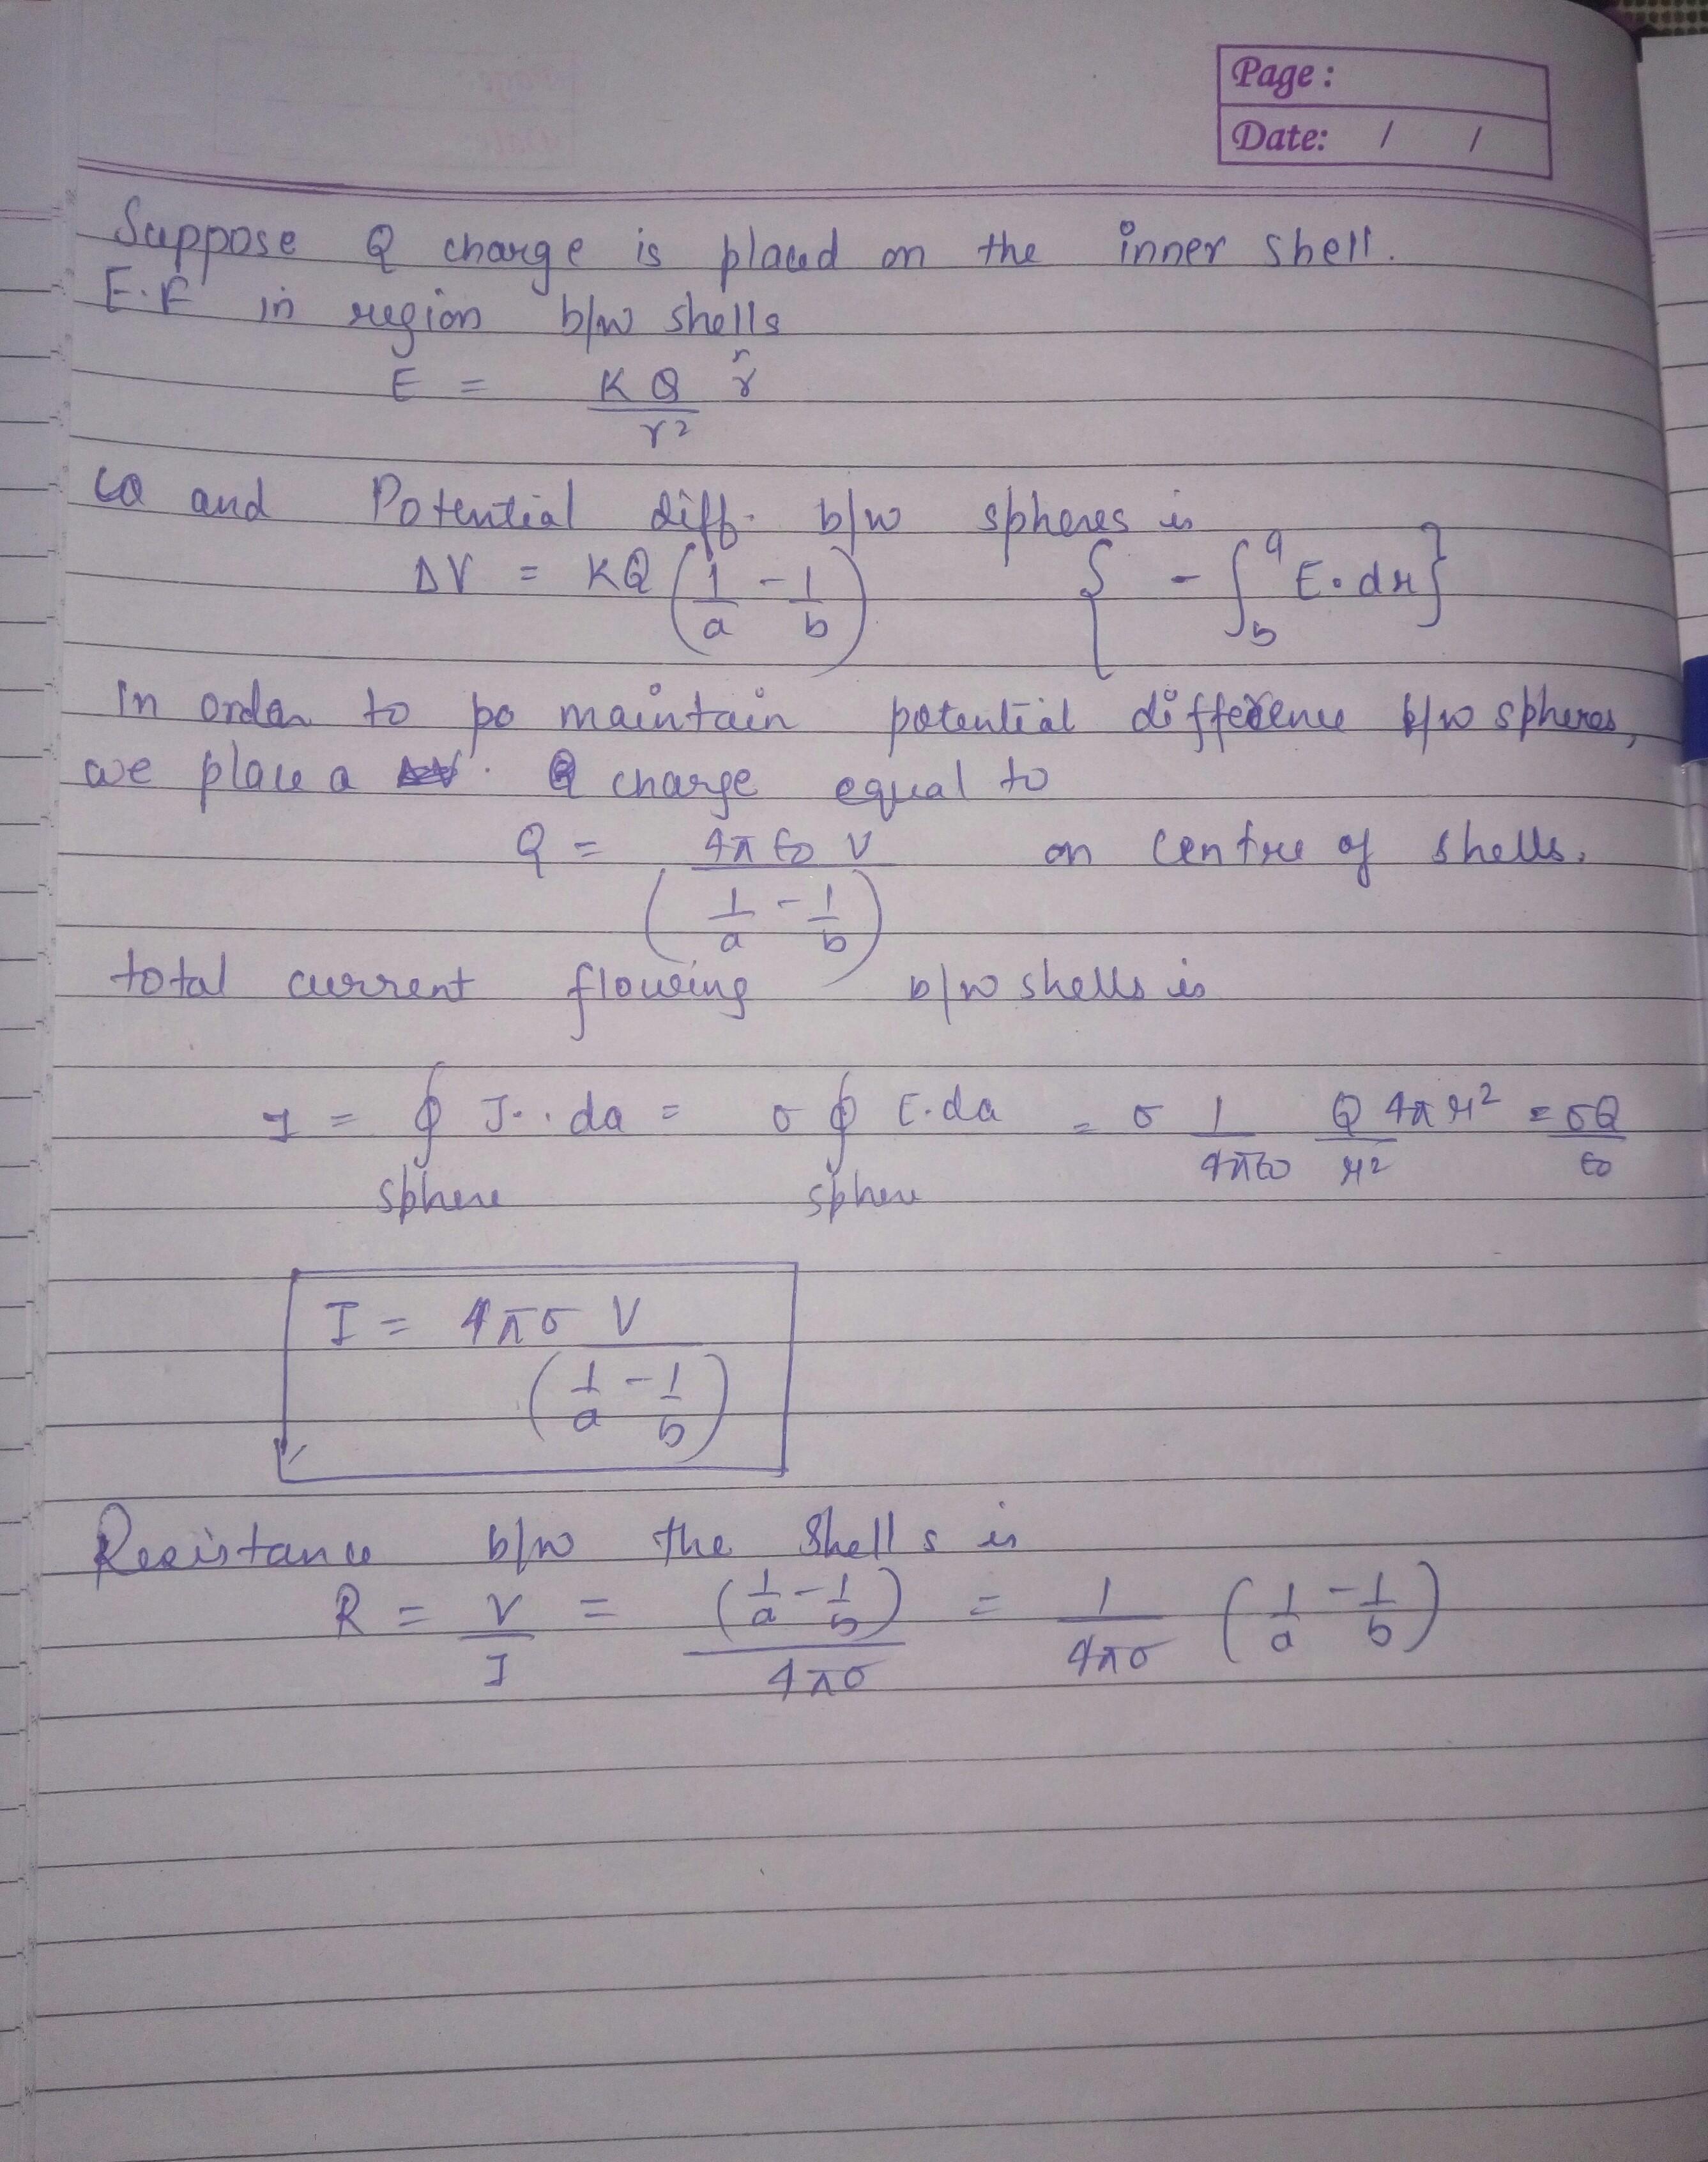 Page :
Date: / /
Suppose Q charge is placed on the inner shell.
E.F in region b/w shells
E = KQ/r² r̂
and Potential diff. b/w spheres is
ΔV = KQ (1/a - 1/b) { - ∫_b^a E. dr}
in order to po maintain potential difference b/w spheres,
we place a Q charge equal to
Q = 4π ε0 V / (1/a - 1/b) on centre of shells.
total current flowing b/w shells is
I = ∮ J. da = σ ∮ E.da = σ 1/4πε0 Q/r² 4πr² = σQ/ε0
sphere sphere
I = 4πσ V / (1/a - 1/b)
Resistance b/w the Shells is
R = V/I = (1/a - 1/b) / 4πσ = 1/4πσ (1/a - 1/b)